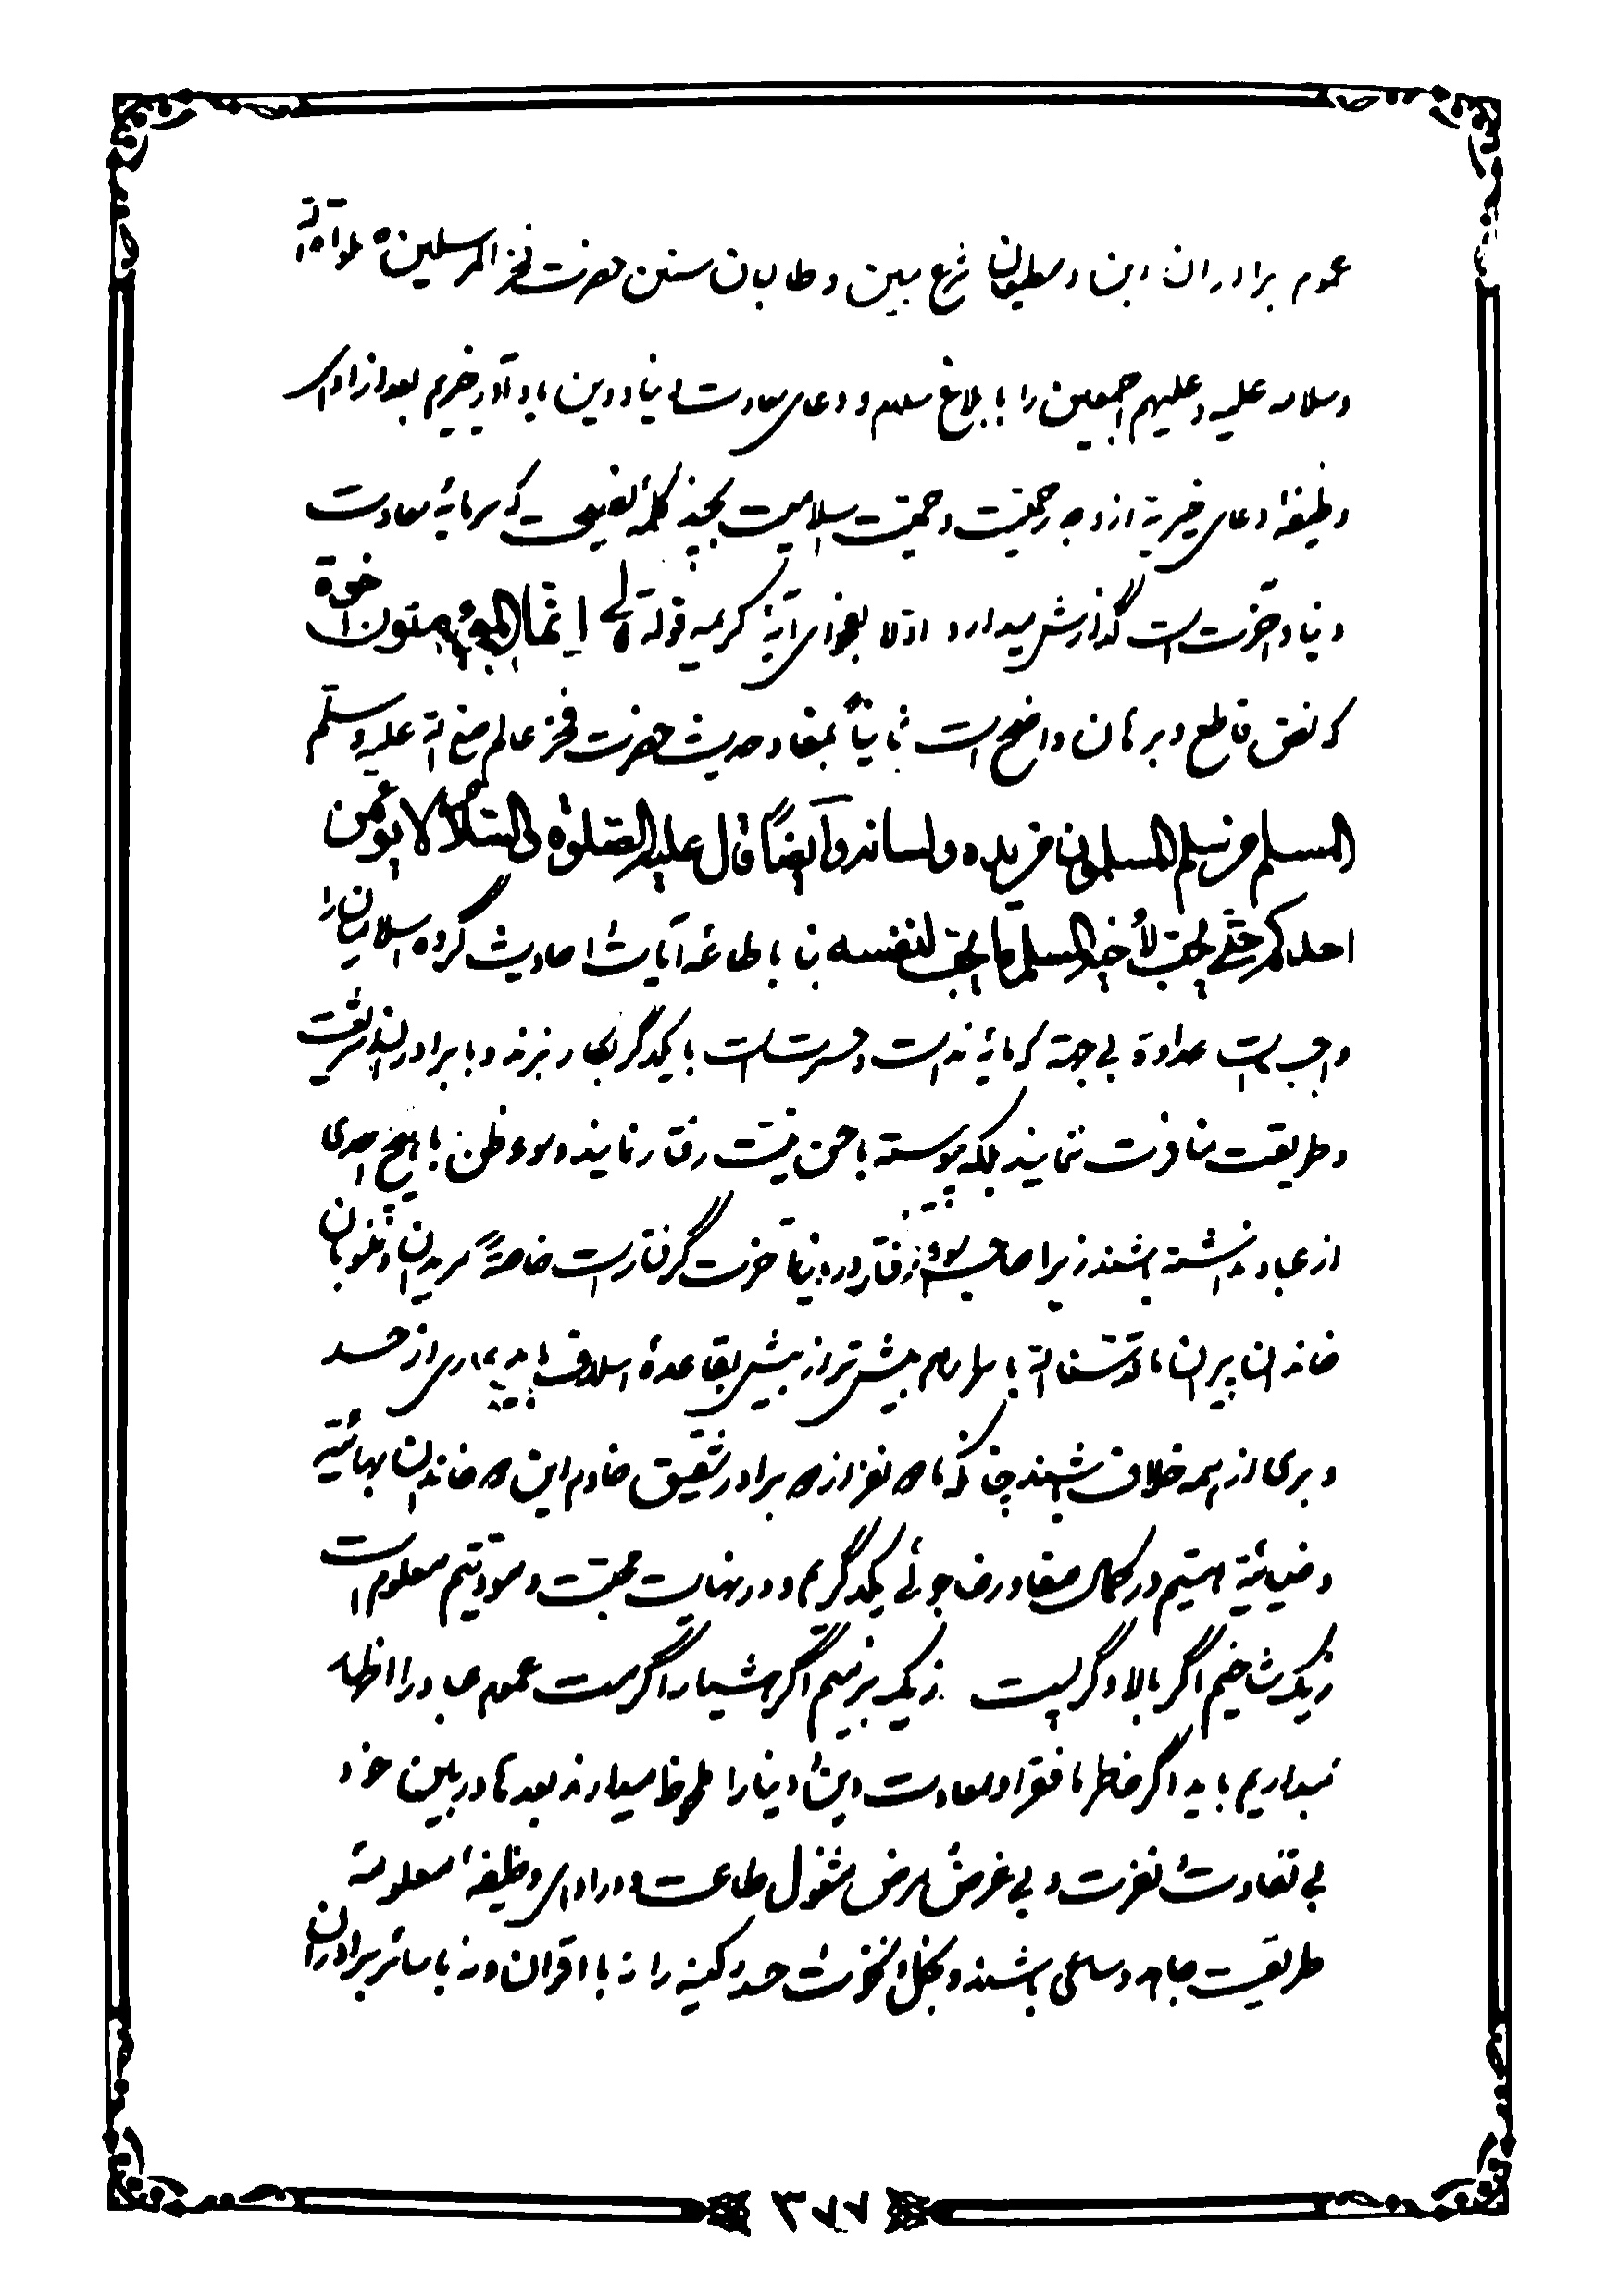 عموم برادران دین و مطیعان شرع مبین و طالبان سنن حضرت فخر المرسلین صلوات الله
و سلامه علیه و علیهم اجمعین را بابلاغ سلام و دعای سعادت دنیا و دین یادآور خیریم بعد از ادای
وظیفهٔ دعای خیریة از وجه حقیت و حمیت اسلامیت بچند کلمهٔ نصیحت که سرمایهٔ سعادت
دنیا و آخرت است گذارش میدارد اولا بفحوای آیهٔ کریمه قوله تعالی إنما المؤمنون اخوة
که نص قاطع و برهان واضح است ثانیاً بمفاد حدیث حضرت فخر عالم صلی الله علیه وسلم
المسلم من سلم المسلمون من یده ولسانه وأیضاً قال علیه الصلوة والسلام لا یؤمن
احدکم حتی یحب لأخیه المسلم ما یحب لنفسه بنا باطاعهٔ آیات و احادیث گروه اسلامیان را
واجب است عداوة بی جهته که مایهٔ ندامت و خسرت است با یکدگر بکار نبرند و با برادران شریعت
و طریقت منافرت ننمایند بلکه پیوسته با حسن نیت رفتار نمایند و سوء ظن با هیچ احدی
از عباد نداشته باشند زیرا صاحب سوء رفتار در دنیا و آخرت گرفتار است خاصةً مریدان و منسوبان
خاندان پیران ما قدسنا الله باسرارهم بیش‌تر از بیش بقاعدهٔ اسلاف باید عاری از حسد
و بری از همه خلاف باشند چنانکه ما نفر از برادر شفیق خادم این خاندان بهائیه
و ضیائیه هستیم در کمال صفا و رضاجوئی یکدگریم و در نهایت محبت و مودتیم معلوم است
ز یک شاخیم اگر بالا و گر پست ز یک بزمیم اگر هشیار اگر مست عموم عباد را اظهار
میداریم باید اگر خاطر ما فقرا و سعادت دین و دنیا را ملحوظ میدارند بعد ما در بین خود
بی تفاوت و نفرت و بی غرض و مرض مشغول طاعت و در ادای وظیفهٔ معلومهٔ
طریقت جاهد و ساعی باشند و بخل و نخوت و حسد و کینه را نه با اقران و نه با سائر برادران
۳۷۷